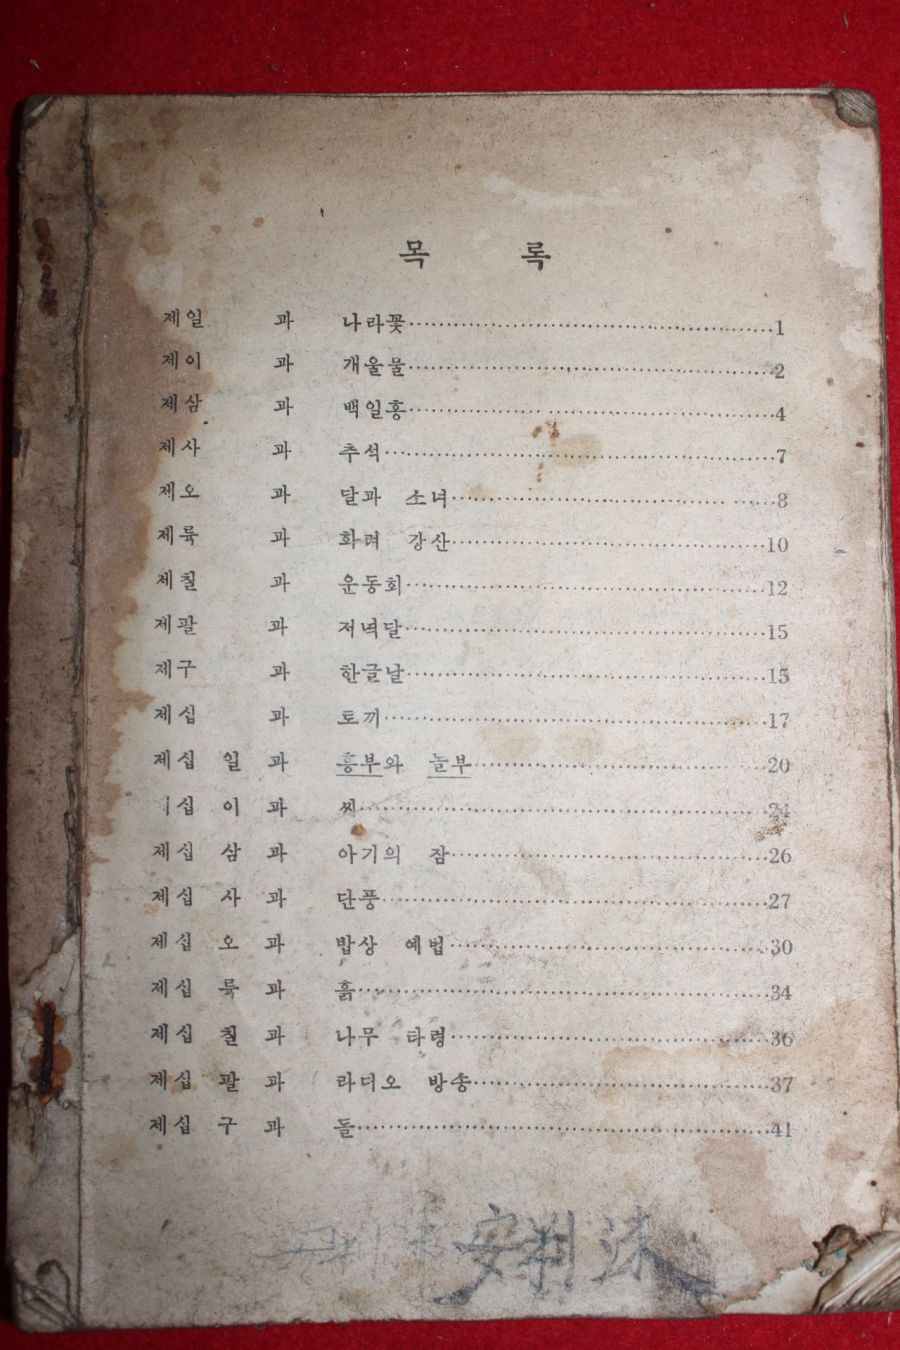 목 록
제일 과 나라꽃 1
제이 과 개울물 2
제삼 과 백일홍 4
제사 과 추석 7
제오 과 달과 소녀 8
제륙 과 화려 강산 10
제칠 과 운동회 12
제팔 과 저녁달 15
제구 과 한글날 15
제십 과 토끼 17
제십 일 과 흥부와 놀부 20
십 이 과 씨 24
제십 삼 과 아기의 잠 26
제십 사 과 단풍 27
제십 오 과 밥상 예법 30
제십 륙 과 흙 34
제십 칠 과 나무 타령 36
제십 팔 과 라디오 방송 37
제십 구 과 돌 41